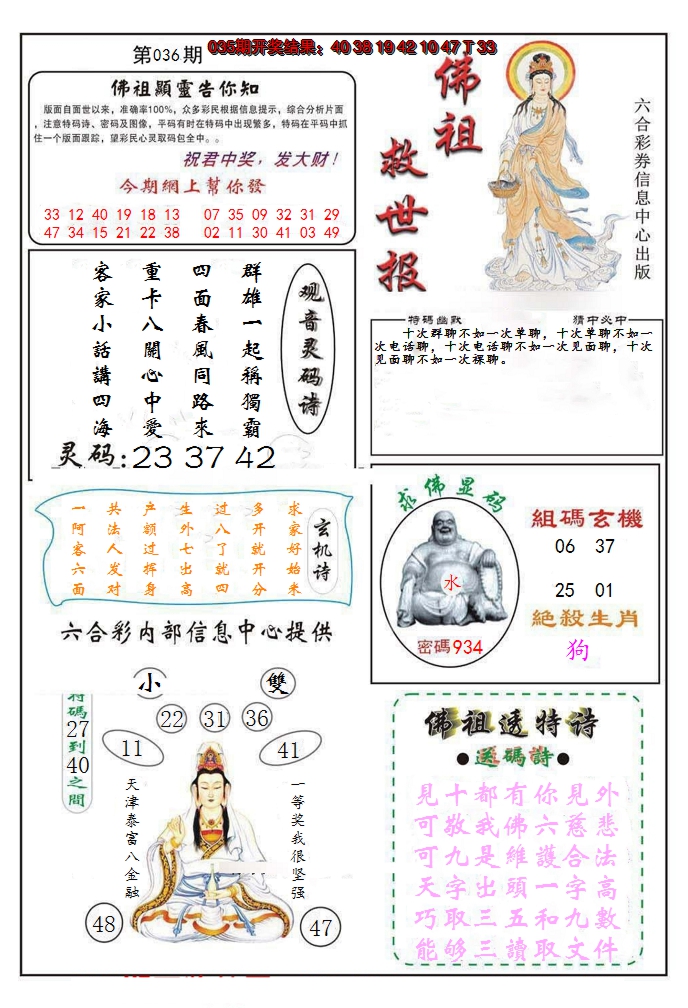 第036期
035期开奖结果：40 38 19 42 10 47丁33
佛祖顯靈告你知
版面自面世以来，准确率100%，众多彩民根据信息提示，综合分析片面
，注意特码诗、密码及图像，平码有时在特码中出现繁多，特码在平码中抓
住一个版面跟踪，望彩民心灵取码包全中。。
祝君中奖，发大财！
今期網上幫你發
33 12 40 19 18 13 07 35 09 32 31 29
47 34 15 21 22 38 02 11 30 41 03 49
佛祖
救世报
六合彩券信息中心出版
观音灵码诗
群雄一起稱獨霸
四面春風同路來
重卡八關心中愛
客家小話講四海
灵码:23 37 42
特碼幽默
猜中必中
十次群聊不如一次单聊，十次单聊不如一
次电话聊，十次电话聊不如一次见面聊，十次
见面聊不如一次裸聊。
玄机诗
求家好始米
多开就开分
过八了就四
生外七出高
产额过挥身
共法人发对
一阿客六面
六合彩内部信息中心提供
求佛显码
水
密碼934
組碼玄機
06 37
25 01
絶殺生肖
狗
小
雙
特碼27到40之間
22 31 36
11
41
天津泰富八金融
一等奖我很坚强
48
47
佛祖透特诗
●送碼詩●
見十都有你見外
可敬我佛六慈悲
可九是維護合法
天字出頭一字高
巧取三五和九數
能够三讀取文件